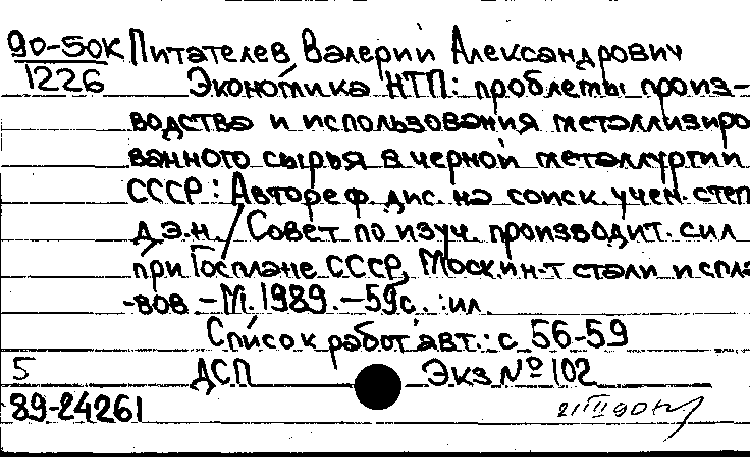 90-50К Питателев Валерий Александрович
1226 Экономика НТП: проблемы произ-
водства и использования металлизиро
ванного сырья в черной металлургии
СССР: Автореф. дис. на соиск. учен. степ
д.э.н. / Совет по изуч. производит. сил
при Госплане СССР, Моск. ин-т стали и спла
-вов. - М. 1989. - 59с. : ил.
Список работ авт.: с 56-59
5 ДСП Экз № 102
89-24261 21/III 90